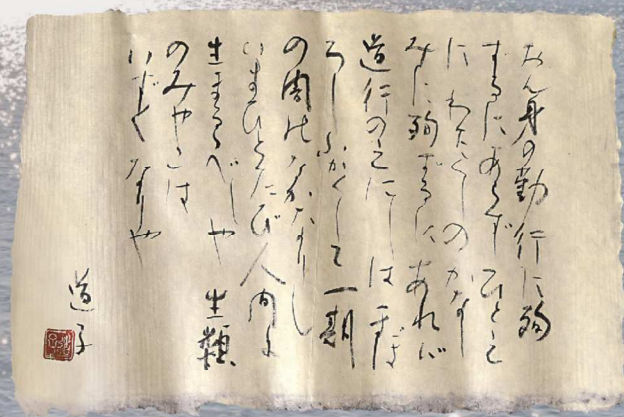 おん身の勤行に殉
ずるにあらず ひとえ
に わたくしの かなし
みに殉ずるにあれば
道行のえにしはまぼ
ろしふかくして一期
の闇のなかなりし
いまひとたび人間に
生まるべしや 生類
のみやこは
いづくなりや
道子